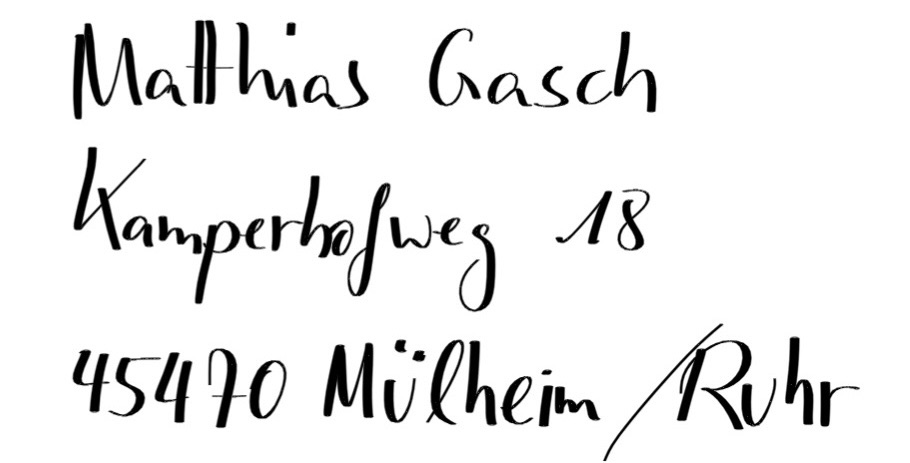 Matthias Gasch
Kamperhofweg 18
45470 Mülheim/Ruhr